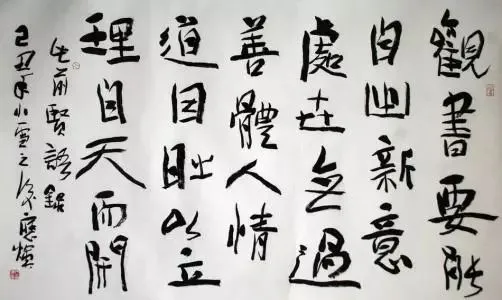 觀書要能
自出新意
處世無過
善體人情
道自以立
理自天而開
前賢語錄
己丑年小雪之後